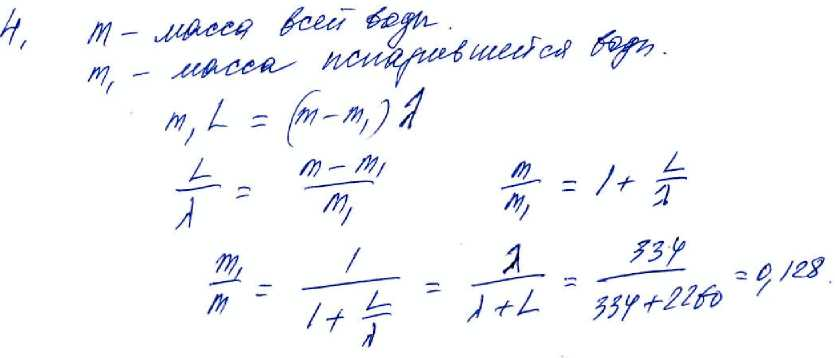 4. m – масса всей воды.
m₁ – масса испарившейся воды.
m₁L = (m – m₁)λ
L/λ = (m – m₁)/m₁    m/m₁ = 1 + L/λ
m₁/m = 1/(1 + L/λ) = λ/(λ + L) = 334/(334 + 2260) = 0,128.